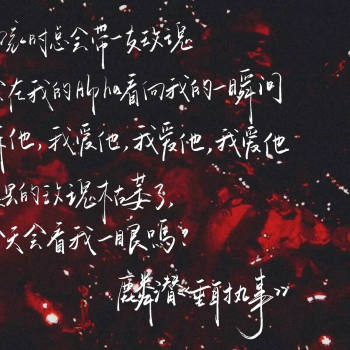 时总会带一支玫瑰
在我的Alpha看向我的一瞬间
他,我爱他,我爱他,我爱他
的玫瑰枯萎了,
天会看我一眼吗?
麟潜《垂耳执事》